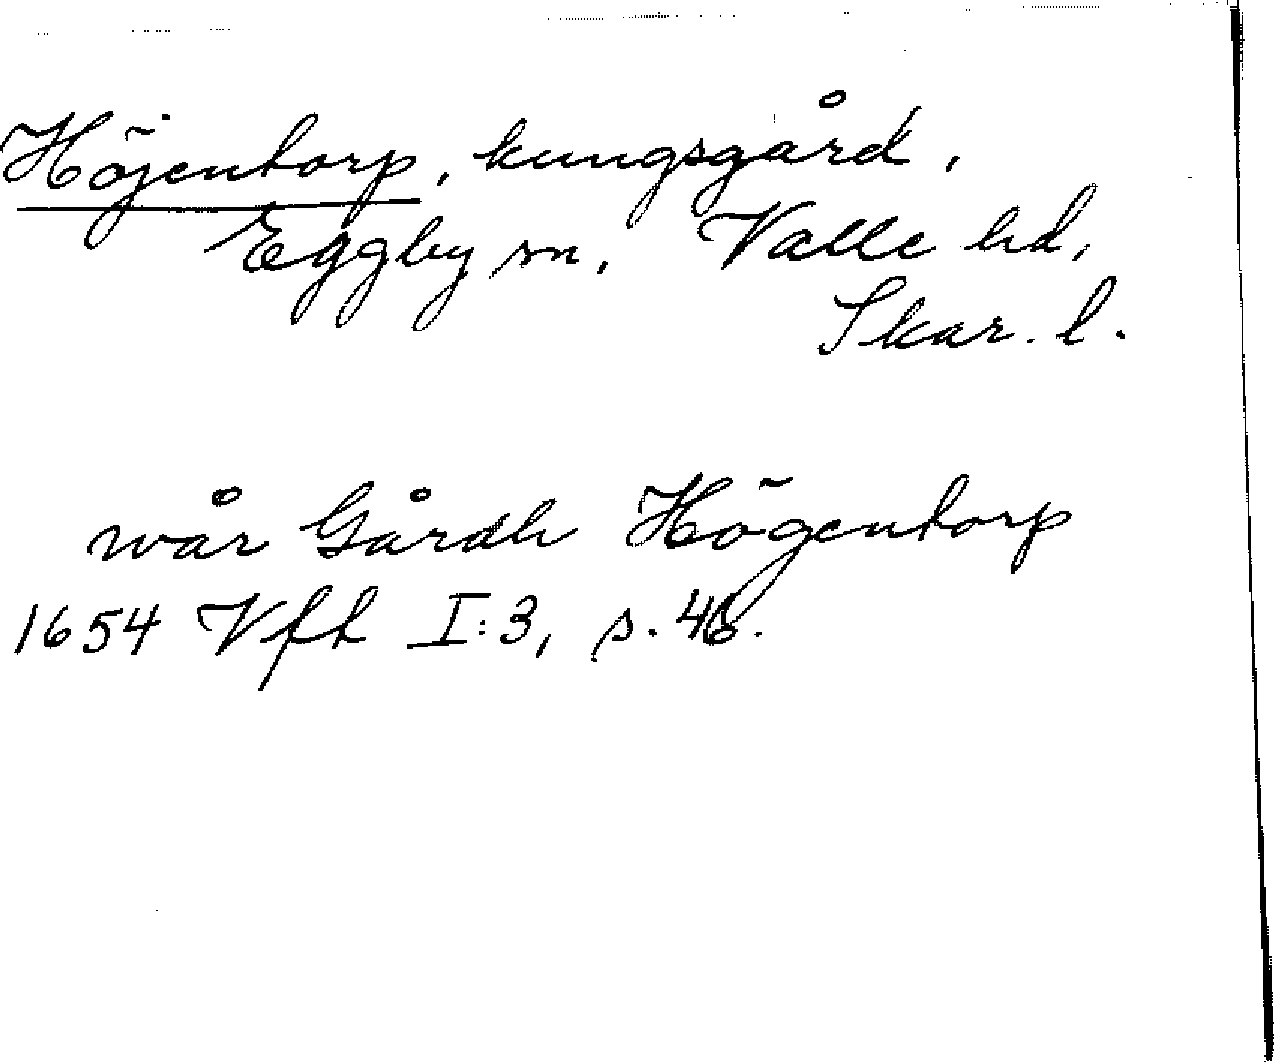 Höjentorp, kungsgård,
Eggby sn, Valle hd,
Skar. l.
wår Gårdh Högentorp
1654 Vfh I:3, s. 46.